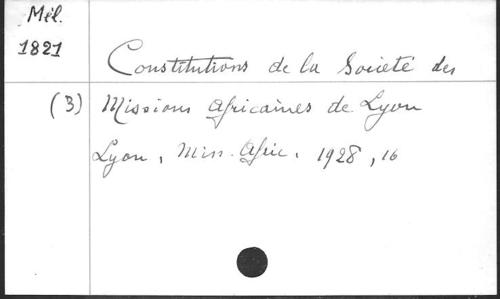 Mél.
1821
Constitutions de la Société des
(3) Missions Africaines de Lyon
Lyon, Miss. Afric. 1928, 16